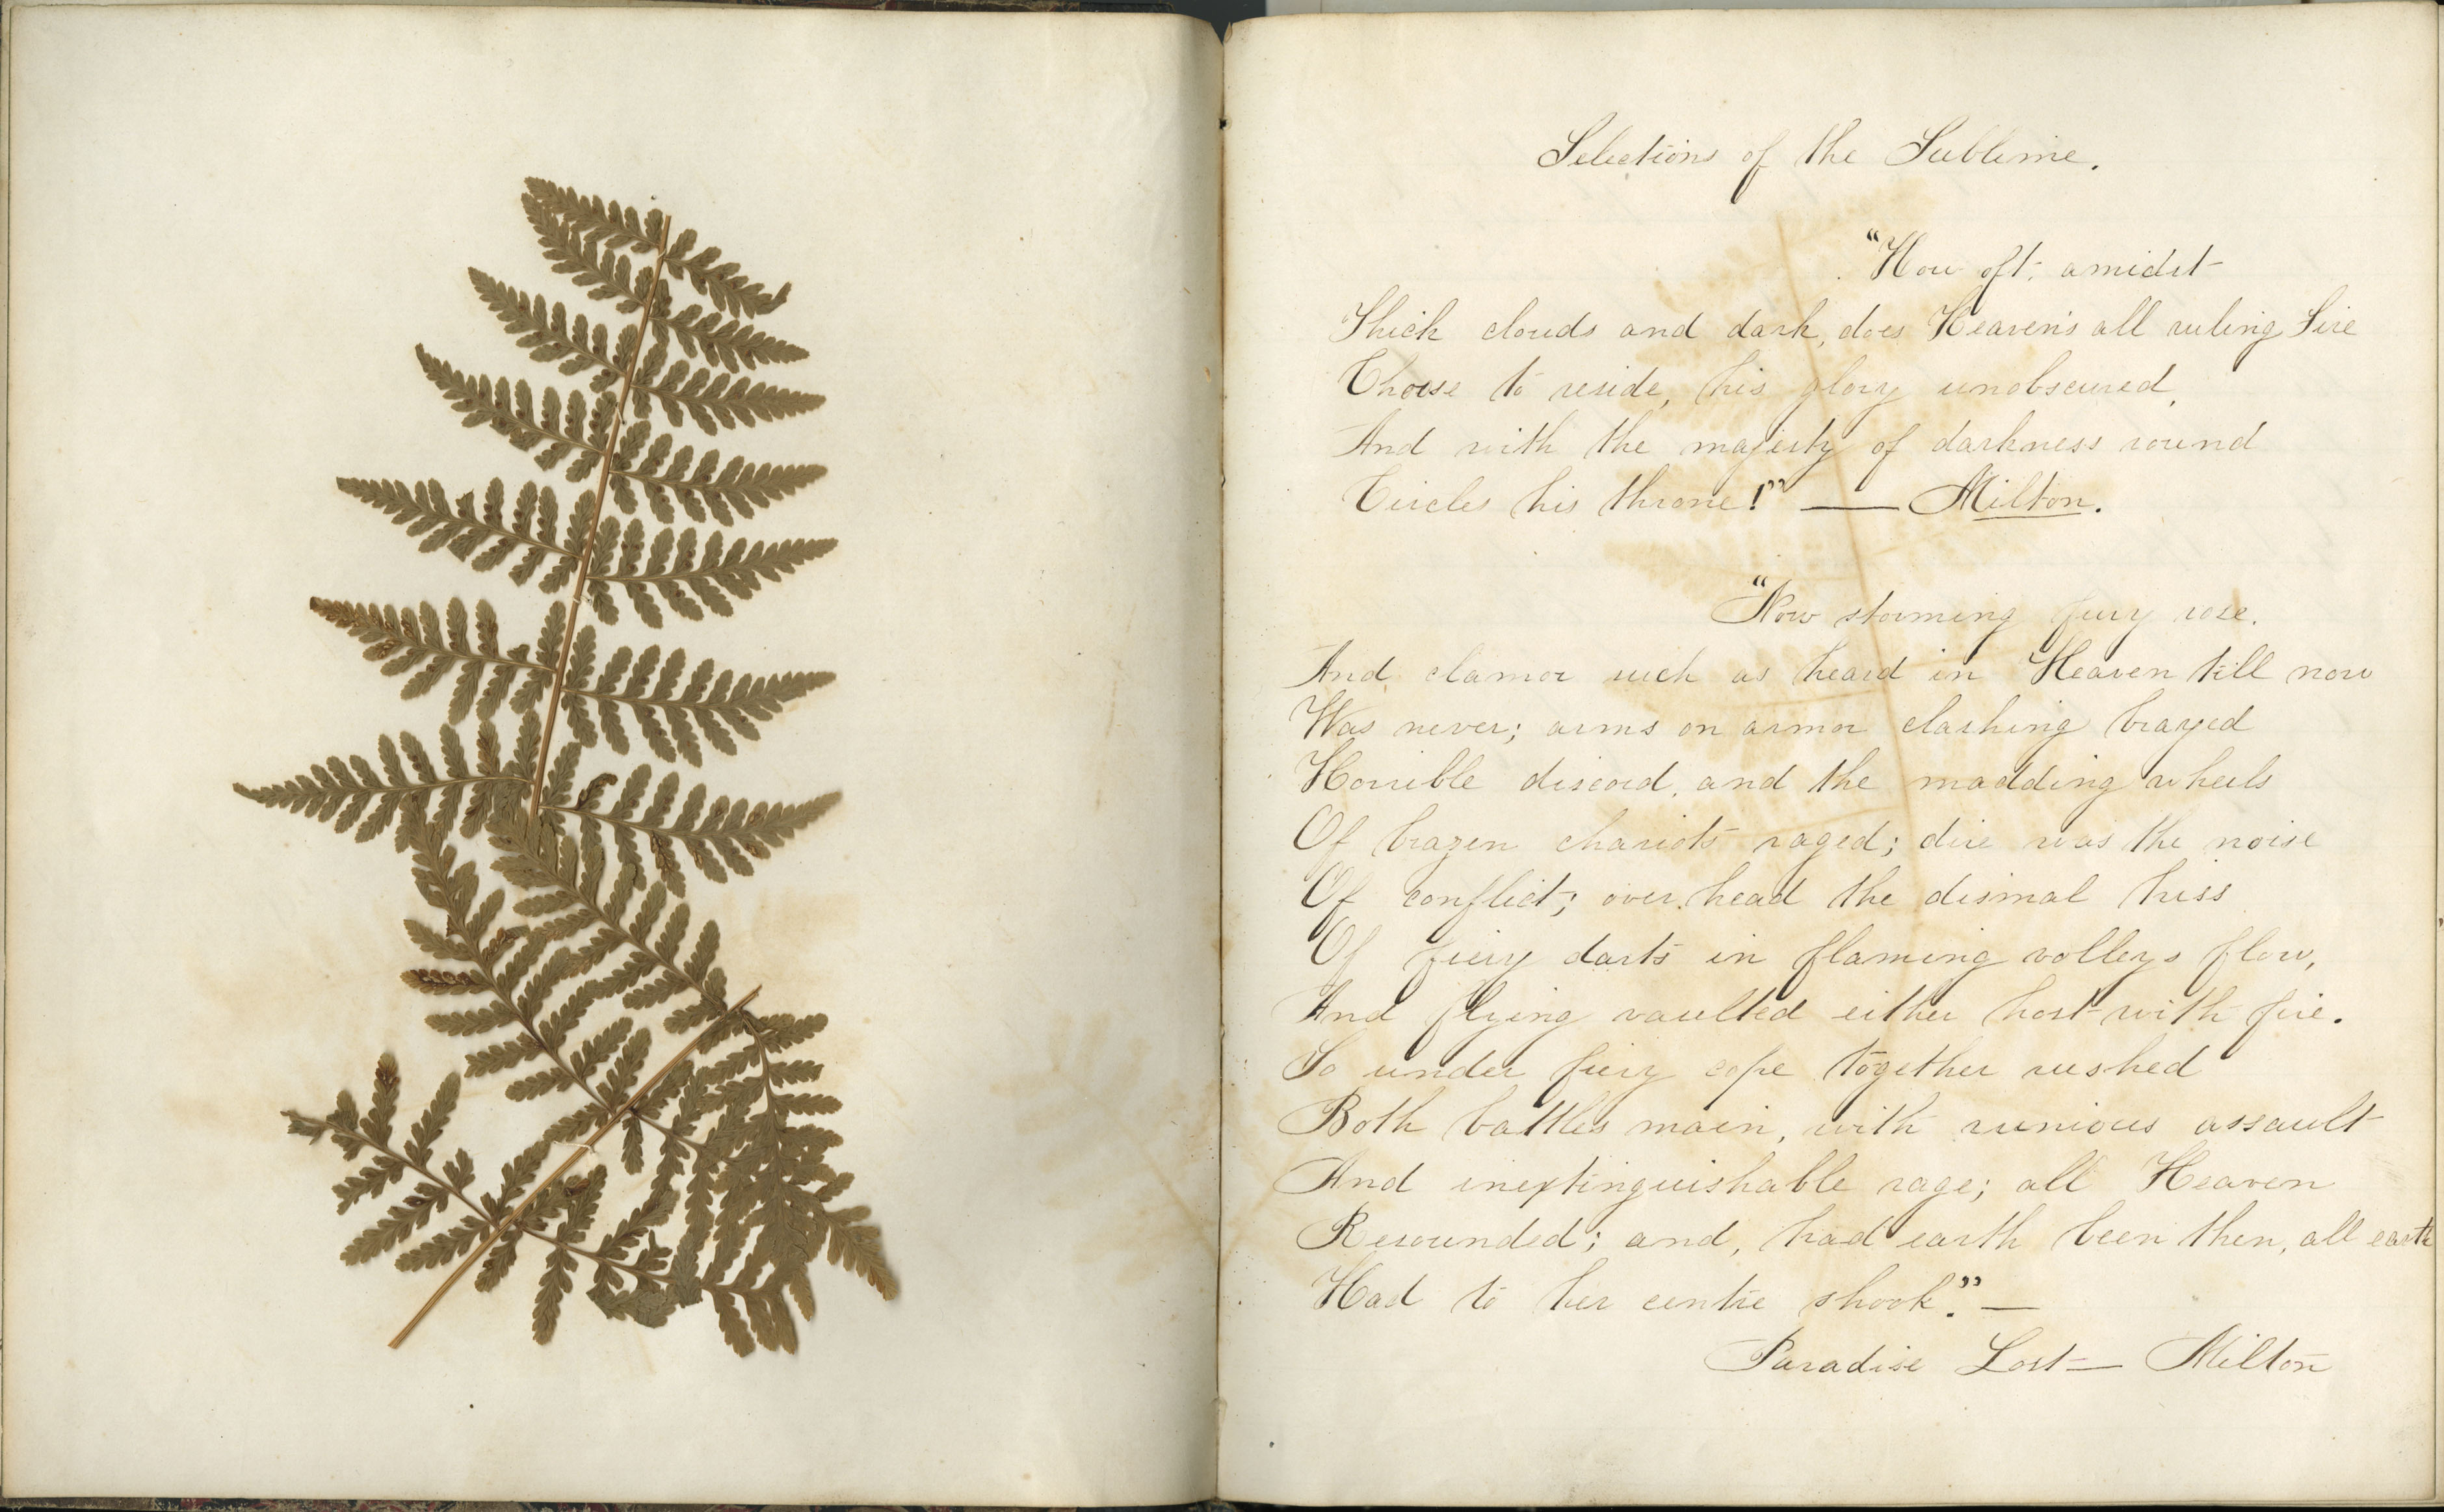 Selections of the Sublime.
"How oft, amidst
Thick clouds and dark, does Heaven's all ruling Sire
Choose to reside, his glory unobscured,
And with the majesty of darkness round
Circles his throne!" — Milton.
"Now storming fury rose.
And clamor such as heard in Heaven till now
Was never; arms on armor clashing brayed
Horrible discord, and the madding wheels
Of brazen chariots raged; dire was the noise
Of conflict; over head the dismal hiss
Of fiery darts in flaming volleys flew,
And flying vaulted either host with fire.
So under fiery cope together rushed
Both battles main, with runious assault
And inextinguishable rage; all Heaven
Resounded; and, had earth been then, all earth
Had to her centre shook." —
Paradise Lost — Milton